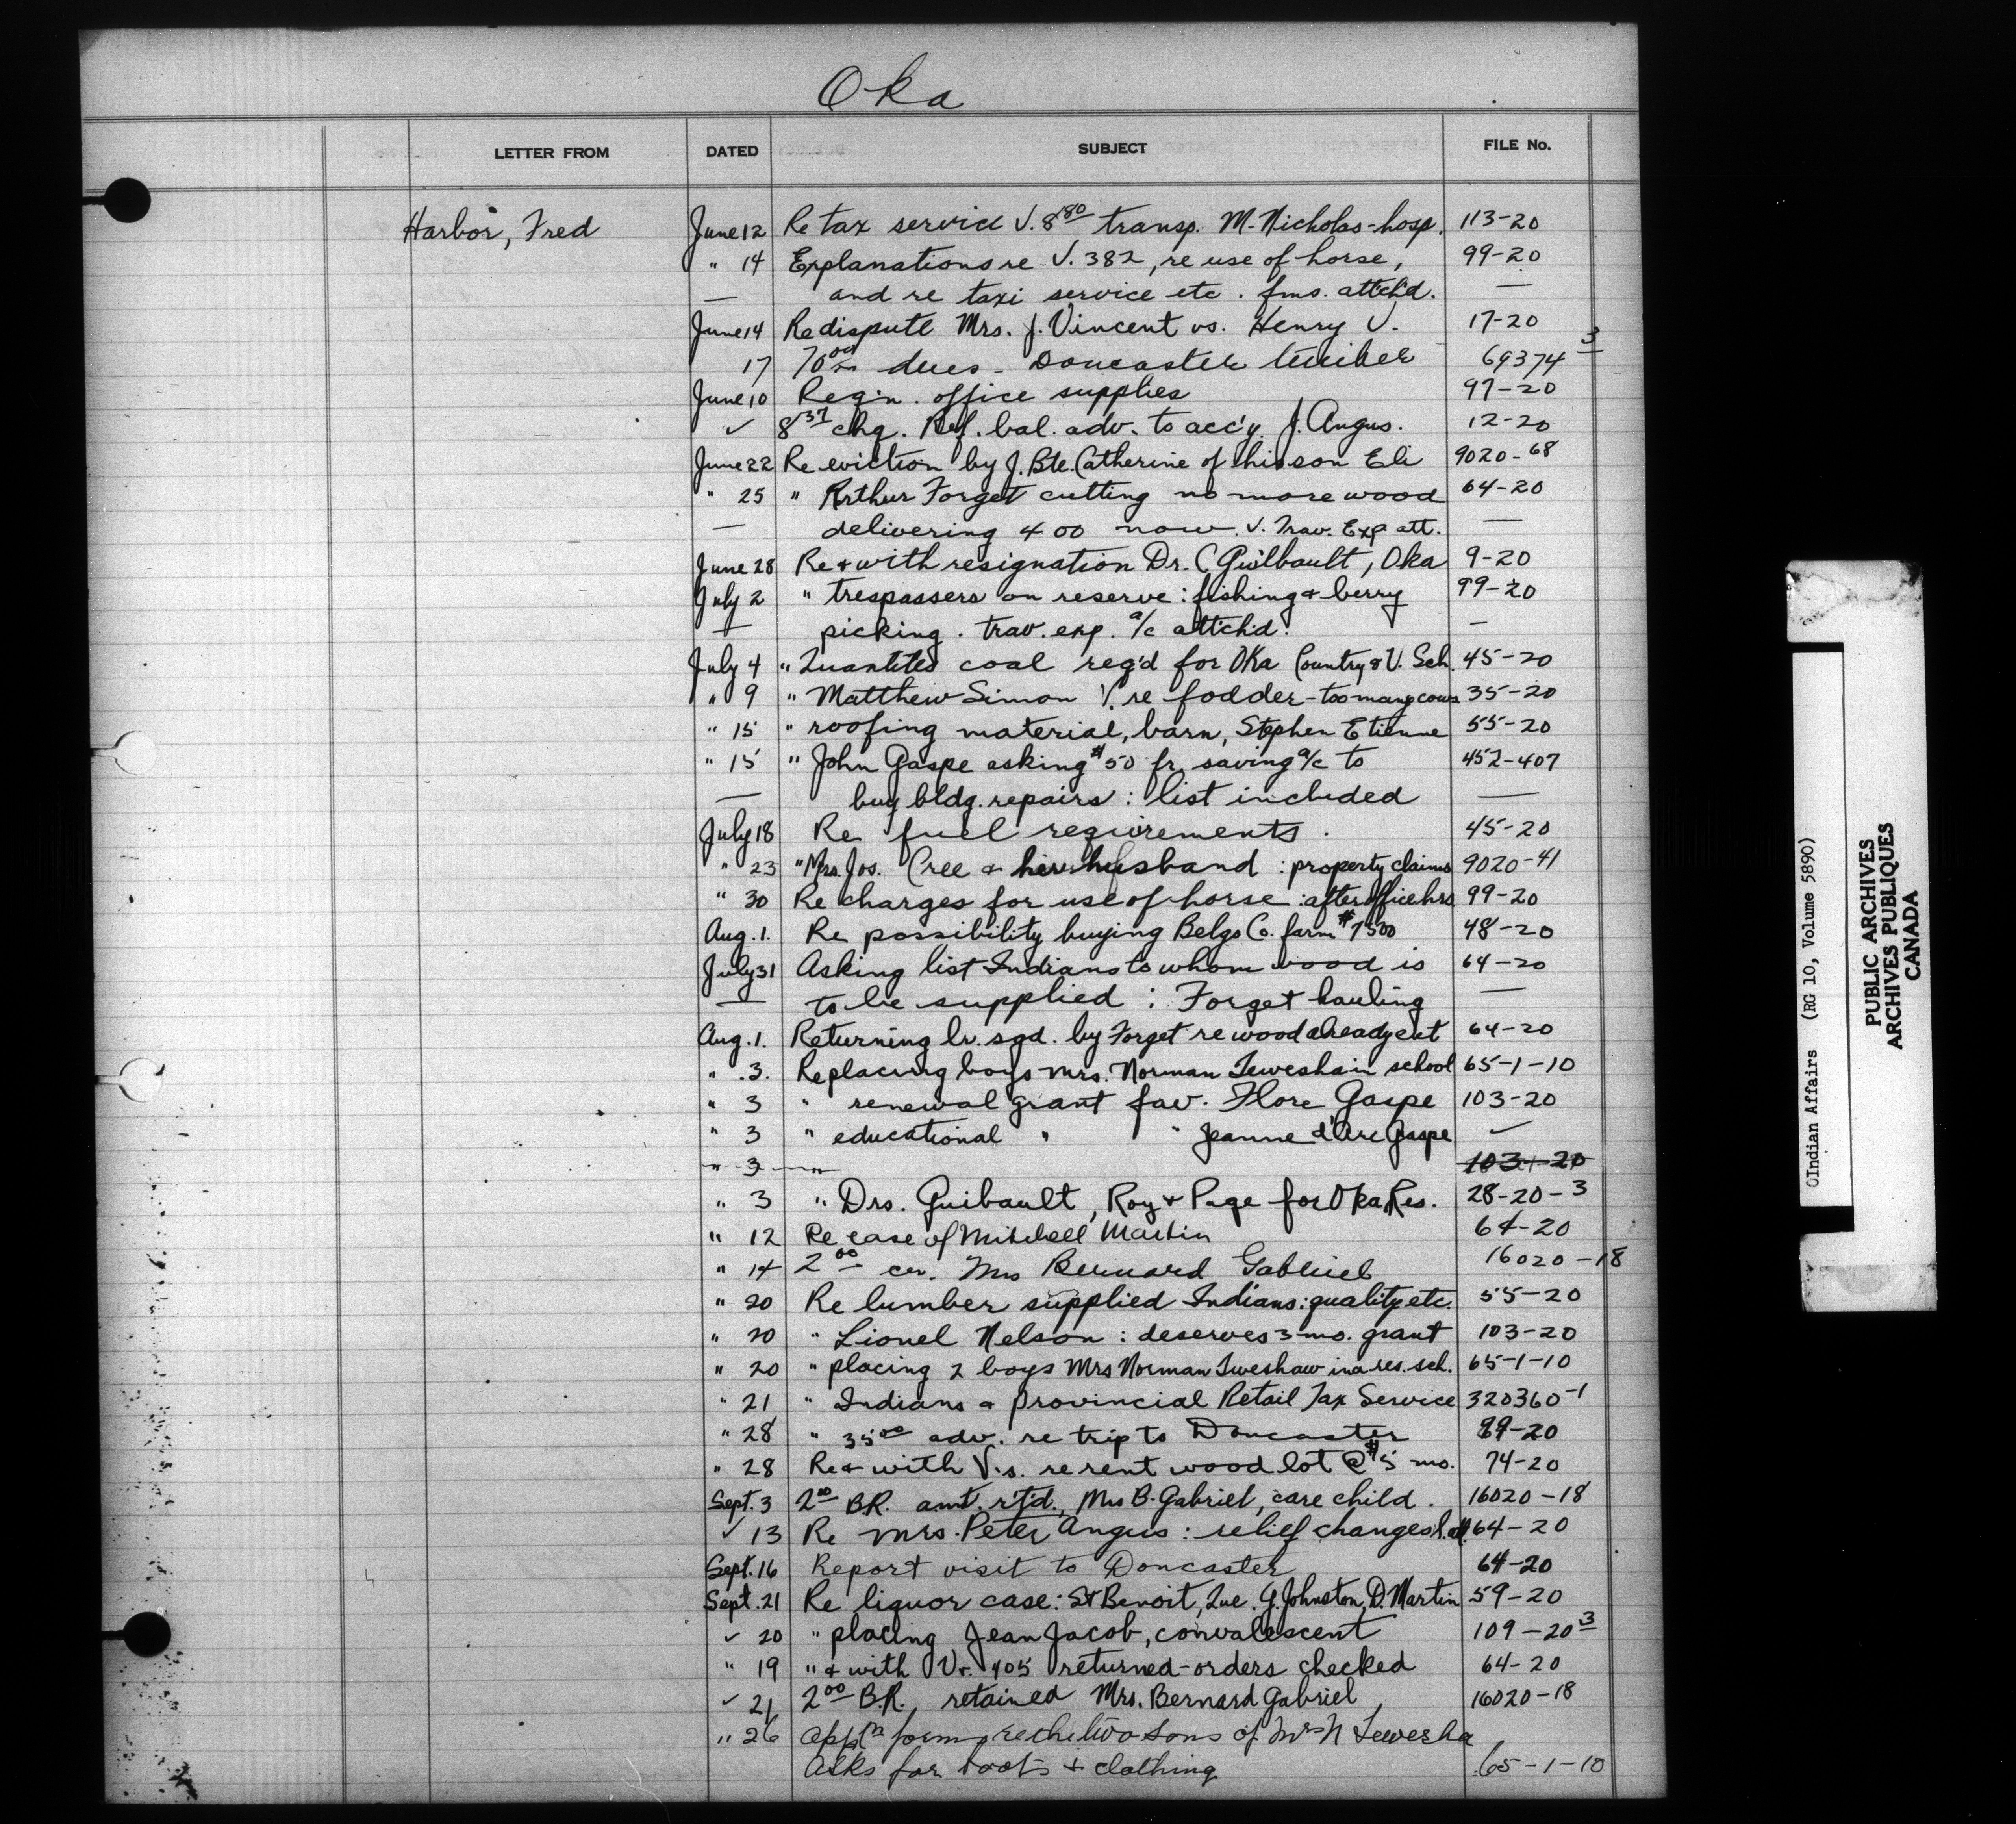 Oka
LETTER FROM DATED SUBJECT FILE No.
Harbor, Fred June 12 Re tax service V. 8 80 transp. M. Nicholas-hosp. 113-20
" 14 Explanations re V. 382, re use of horse, 99-20
— and re taxi service etc. fms. attch'd. —
June 14 Re dispute Mrs. J. Vincent vs. Henry V. 17-20
17 70 00 dues - Doncaster timber 69374 3
June 10 Req'n. office supplies 97-20
✓ 8 37 chq. Ref. bal. adv. to acc'y J. Angus. 12-20
June 22 Re eviction by J. Bte. Catherine of his son Eli 9020-68
" 25 " Arthur Forget cutting no more wood 64-20
— delivering 400 now. V. Trav. Exp att. —
June 28 Re & with resignation Dr. C Guilbault, Oka 9-20
July 2 " trespassers on reserve: fishing & berry 99-20
— picking. trav. exp. a/c attch'd. —
July 4 " Quantites coal req'd for Oka Country & V. Sch. 45-20
" 9 " Matthew Simon V. re fodder - too many cows 35-20
" 15 " roofing material, barn, Stephen Etienne 55-20
" 15 " John Gaspe asking $50 fr. saving a/c to 452-407
— buy bldg. repairs: list included —
July 18 Re fuel requirements. 45-20
" 23 " Mrs. Jos. Cree & her husband: property claims 9020-41
" 30 Re charges for use of horse: after office hrs 99-20
Aug. 1. Re possibility buying Belgo Co. farm $7500 48-20
July 31 Asking list Indians to whom wood is 64-20
— to be supplied: Forget hauling —
Aug. 1. Returning lr. sgd. by Forget re wood already cut 64-20
" 3. Re placing boys Mrs. Norman Tewesha in school 65-1-10
" 3 " renewal grant fav. Flore Gaspe 103-20
" 3 " educational " " Jeanne d'Arc Gaspe ✓
" 3 " 103-20
" 3 " Drs. Guibault, Roy & Page for Oka Res. 28-20-3
" 12 Re case of Mitchell Martin 64-20
" 14 2 00 Mrs Bernard Gabriel 16020-18
" 20 Re lumber supplied Indians: quality etc. 55-20
" 20 " Lionel Nelson: deserves 3 mo. grant 103-20
" 20 " placing 2 boys Mrs Norman Tweshaw in a res. sch. 65-1-10
" 21 " Indians & Provincial Retail Tax Service 320360-1
" 28 " 35 00 adv. re trip to Doncaster 99-20
" 28 Re & with V.s. re rent wood lot @ $5 mo. 74-20
Sept. 3 2 00 B.R. amt. r't'd., Mrs B. Gabriel, care child. 16020-18
✓ 13 Re Mrs. Peter Angus: relief changes 64-20
Sept. 16 Report visit to Doncaster 64-20
Sept. 21 Re liquor case: St Benoit, Que. G. Johnston, D. Martin 59-20
✓ 20 " placing Jean Jacob, convalescent 109-20 3
" 19 " & with Vr. 405 returned-orders checked 64-20
✓ 21 2 00 B.R. retained Mrs. Bernard Gabriel 16020-18
" 26 app'tn forms re the two sons of Mrs N Tewesha
Asks for boots & clothing 65-1-10
(Indian Affairs (RG 10, Volume 5890)
PUBLIC ARCHIVES
ARCHIVES PUBLIQUES
CANADA